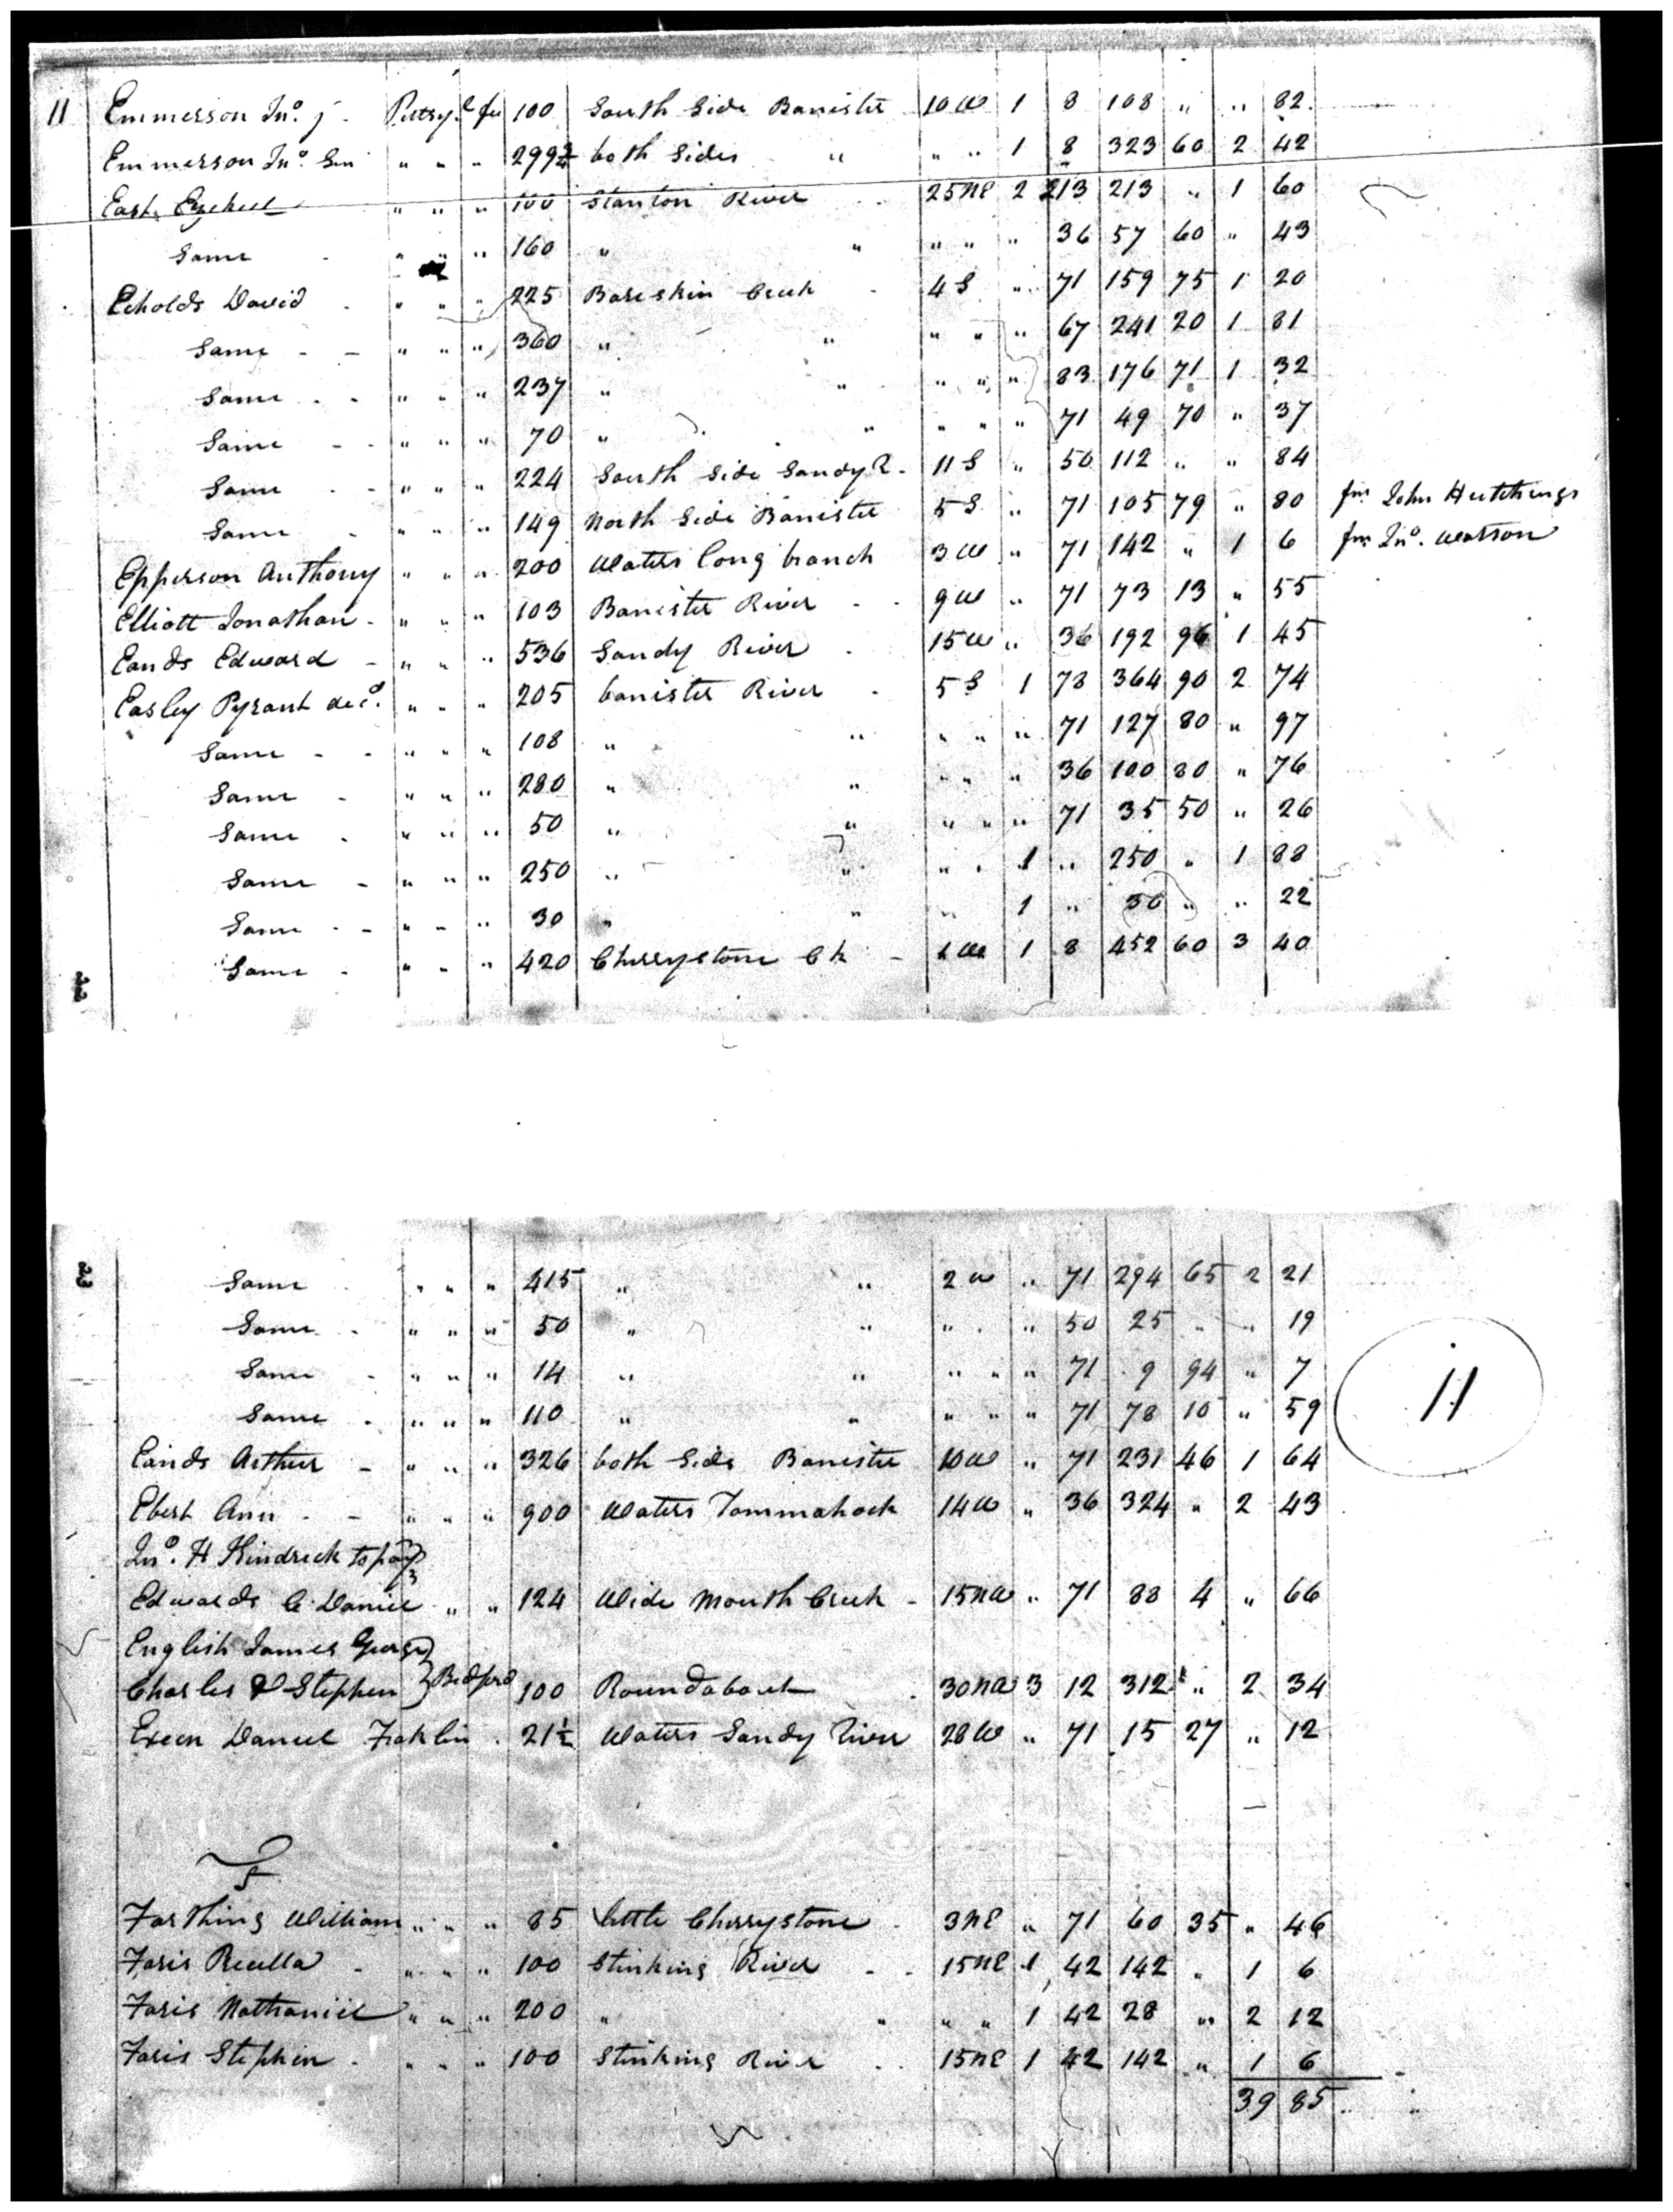 11 Emmerson Jno. j. Pittsy.a fee 100 South Side Banister 10 W 1 8 108 " " 82
Emmerson Jno. Sen " " " 299¾ both Sides " " " 1 8 323 60 2 42
East Ezekiel " " " 100 Stanton River 25 NE 2 213 213 " 1 60
Same " " " 160 " " " " " 36 57 60 " 43
Echolds David " " " 225 Bareskin Creek 4 S " 71 159 75 1 20
Same " " " 360 " " " " " 67 241 20 1 81
Same " " " 237 " " " " " 83 176 71 1 32
Same " " " 70 " " " " " 71 49 70 " 37
Same " " " 224 South Side Sandy R. 11 S " 50 112 " " 84
Same " " " 149 North Side Banister 5 S " 71 105 79 " 80 fm John Hutchings
Epperson Anthony " " " 200 Waters long branch 3 W " 71 142 " 1 6 fm Jno. Watson
Elliott Jonathan " " " 103 Banister River 9 W " 71 73 13 " 55
Eands Edward " " " 536 Sandy River 15 W " 36 192 96 1 45
Easley Pyrant decd. " " " 205 banister River 5 S 1 78 364 90 2 74
Same " " " 108 " " " " " 71 127 80 " 97
Same " " " 280 " " " " " 36 100 80 " 76
Same " " " 50 " " " " " 71 35 50 " 26
Same " " " 250 " " " " 1 " 250 " 1 88
Same " " " 30 " " " 1 " 30 " " 22
Same " " " 420 Cherrystone Ck 1 W 1 8 452 60 3 40
22
23 Same " " " 415 " " 2 W " 71 294 65 2 21
Same " " " 50 " " " " " 50 25 " " 19
Same " " " 14 " " " " " 71 9 94 " 7
Same " " " 110 " " " " " 71 78 10 " 59
11
Eands Arthur " " " 326 both Side Banister 10 W " 71 231 46 1 64
Ebert Ann " " " 900 Waters Tommahock 14 W " 36 324 " 2 43
Jno. H Kindrick to pay
Edwards C. Daniel " " 124 Wide Mouth Creek 15 NW " 71 88 4 " 66
English James George
Charles & Stephen Bedford 100 Roundabout 30 NW 3 12 312 " 2 34
Daniel Franklin 21½ Waters Sandy River 28 W " 71 15 27 " 12
F
Farthing William " " " 85 little Cherrystone 3 NE " 71 60 35 " 46
Faris " " " 100 Stinking River 15 NE 1 42 142 " 1 6
Faris Nathaniel " " " 200 " " " " 1 42 28 " 2 12
Faris Stephen " " " 100 Stinking River 15 NE 1 42 142 " 1 6
39 85